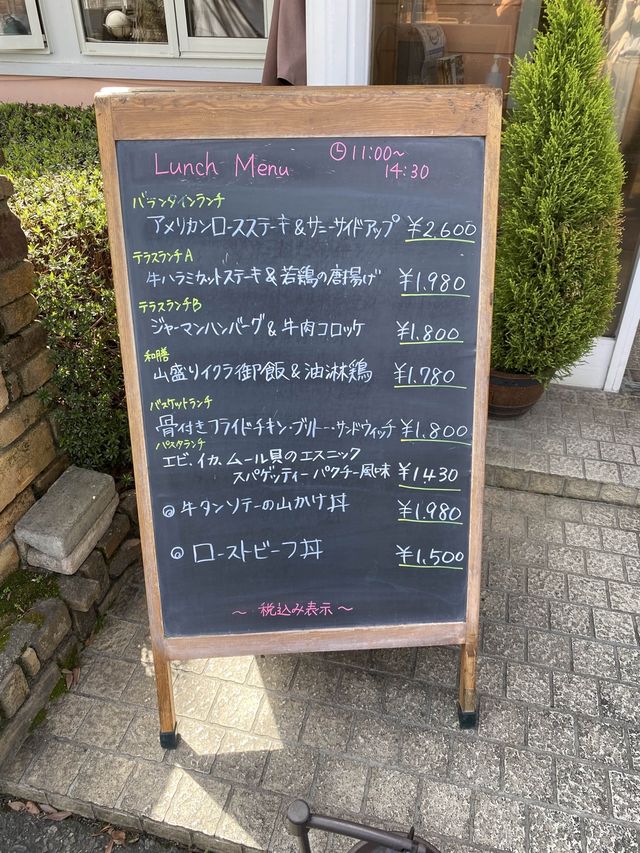 Lunch Menu 11:00~
14:30
バランタインランチ
アメリカンロースステーキ&サニーサイドアップ ¥2,600
テラスランチA
牛ハラミカットステーキ&若鶏の唐揚げ ¥1,980
テラスランチB
ジャーマンハンバーグ&牛肉コロッケ ¥1,800
和膳
山盛りイクラ御飯&油淋鶏 ¥1,780
バスケットランチ
骨付きフライドチキン・ブリトー・サンドウィッチ ¥1,800
パスタランチ
エビ、イカ、ムール貝のエスニック
スパゲッティー パクチー風味 ¥1430
◎ 牛タンソテーの山かけ丼 ¥1,980
◎ ローストビーフ丼 ¥1,500
~ 税込み表示 ~